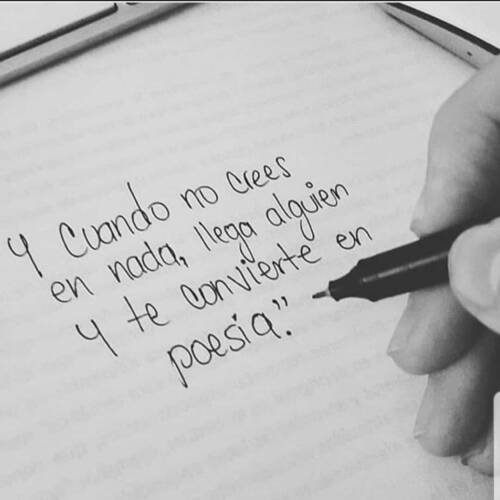 Y Cuando no crees
en nada, llega alguien
Y te convierte en
poesia".